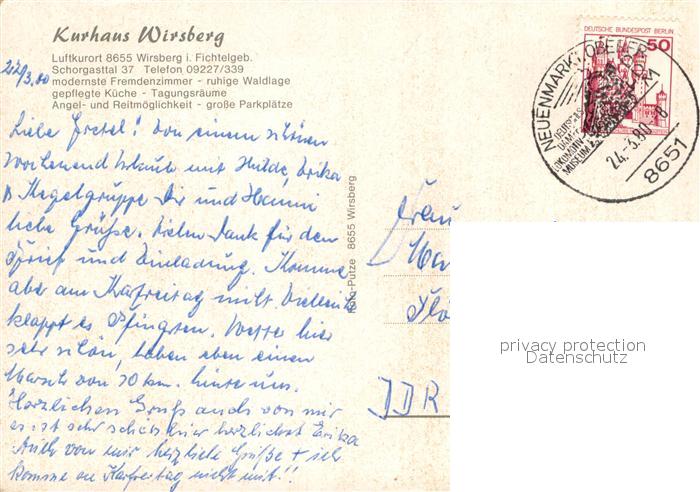 Kurhaus Wirsberg
Luftkurort 8655 Wirsberg i. Fichtelgeb.
Schorgasttal 37 Telefon 09227/339
modernste Fremdenzimmer - ruhige Waldlage
gepflegte Küche - Tagungsräume
Angel- und Reitmöglichkeit - große Parkplätze
22/3.80
Liebe Gretel! Von einem schönen
Wochenend Urlaub mit Hilde, Erika
Kegelgruppe Dir und Hanni
liebe Grüße. Vielen Dank für den
Brief und Einladung. Komme
aber am Karfreitag nicht. Vielleicht
klappt es Pfingsten. Wetter hier
sehr schön, haben eben einen
Marsch von 20 km. hinter uns.
Herzlichen Gruß auch von mir
es ist sehr schön hier herzlichst Erika
Auch von mir herzliche Grüße + ich
komme an Karfreitag nicht mit!!
Foto-Putze 8655 Wirsberg
DEUTSCHE BUNDESPOST BERLIN
50
NEUENMARKT, OBERFR
DEUTSCHES
DAMPF
LOKOMOTIV
MUSEUM
24.-3.80-8
8651
Frau
DDR
privacy protection
Datenschutz